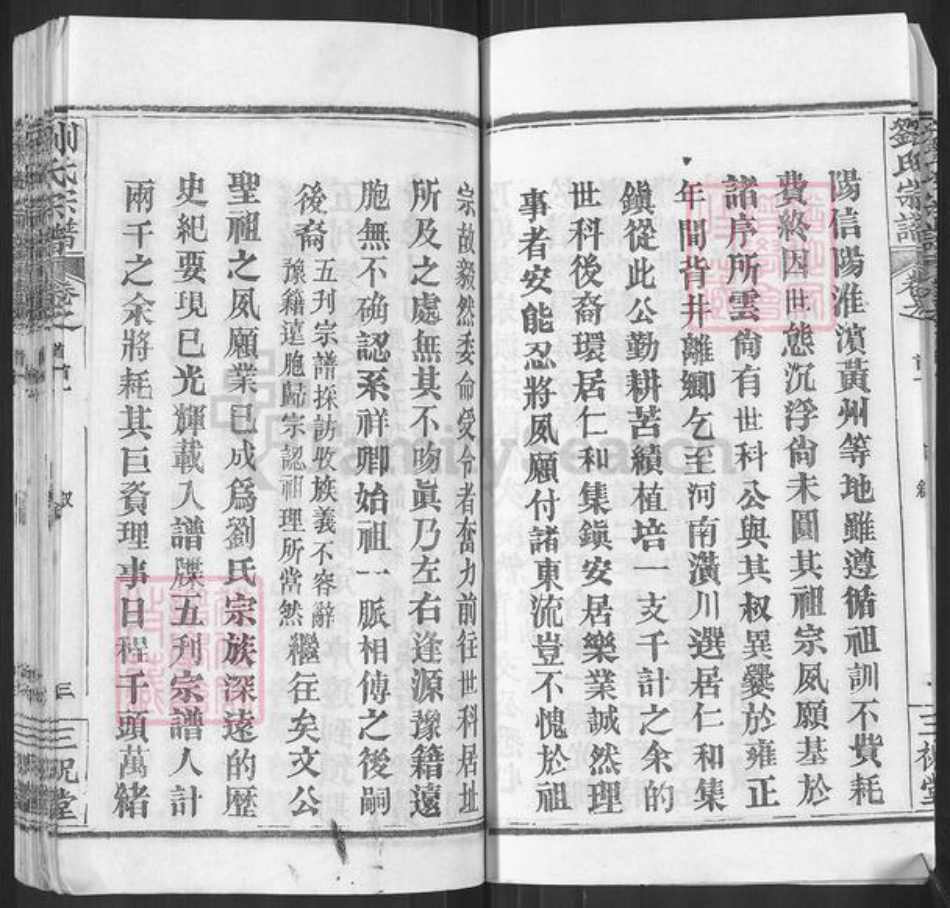 劉氏宗譜
陽信陽淮濱黃州等地雖遵循祖訓不費耗
費終因世態沉浮尙未圓其祖宗夙願基於
諸序所雲尙有世科公與其叔異爨於雍正
年間背井離鄉乞至河南潢川選居仁和集
鎭從此公勤耕苦績植培一支千計之余的
世科後裔環居仁和集鎭安居樂業誠然理
事者安能忍將夙願付諸東流豈不愧於祖
宗故毅然委命受令者奮力前往世科居址
所及之處無其不吻眞乃左右逢源豫籍遠
胞無不确認系祥卿始祖一脈相傳之後嗣
後裔
五刋宗譜採訪收族義不容辭
豫籍遠胞歸宗認祖理所當然
繼往矣文公
聖祖之夙願業已成爲劉氏宗族深遠的歷
史紀要現已光輝載入譜牒五刋宗譜人計
兩千之余將耗其巨資理事日程千頭萬緒
劉氏宗譜
卷之
三
三祝堂
FamilySearch